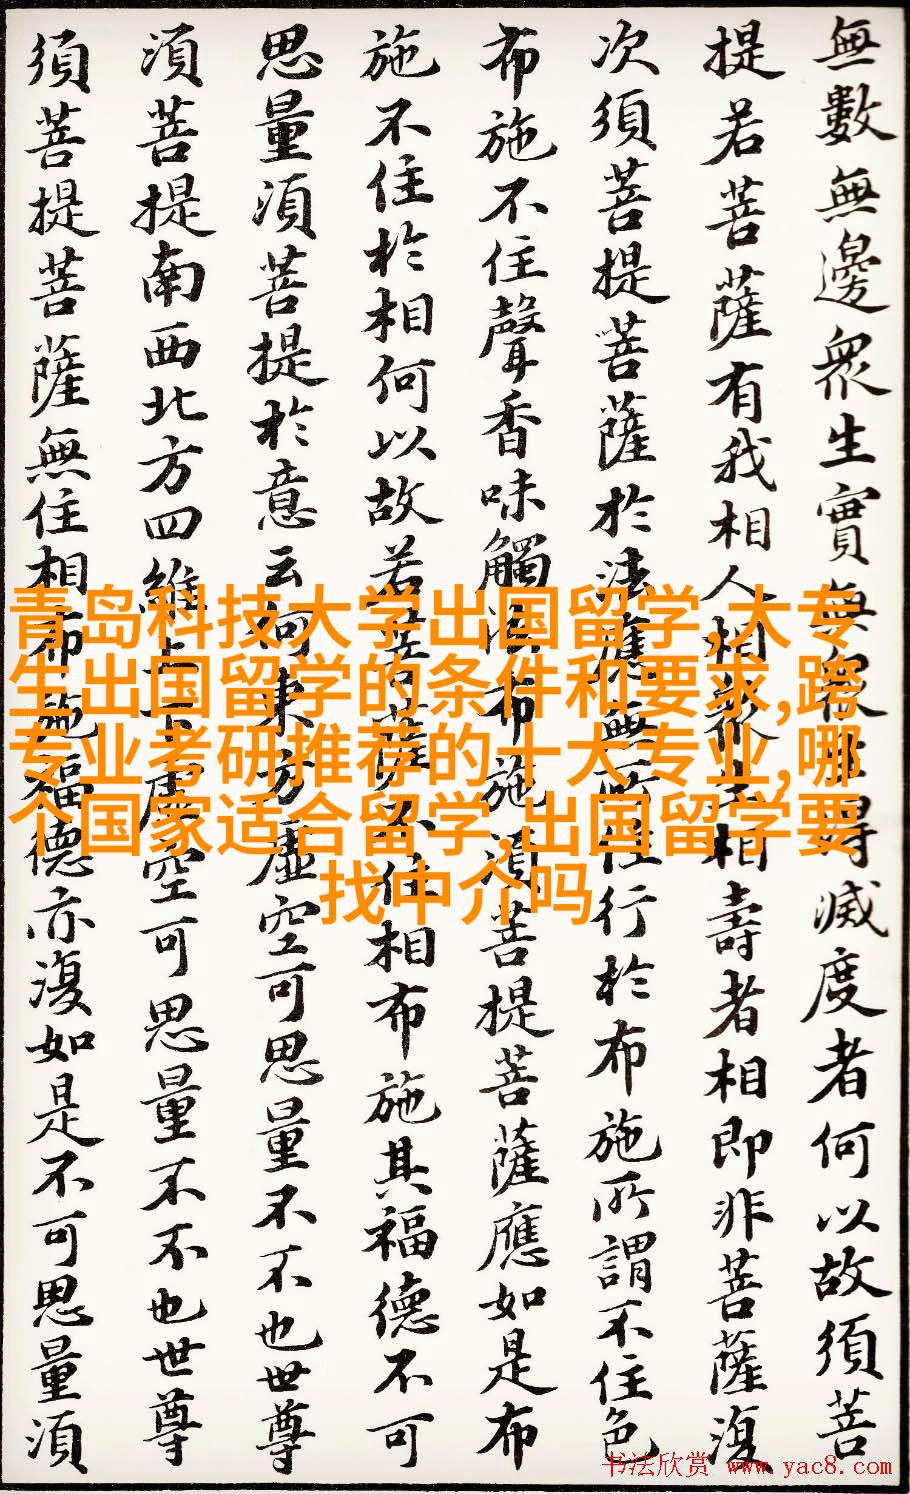 無數無邊眾生實無眾生得滅度者何以故須菩
提若菩薩有我相人相眾生相壽者相即非菩薩復
次須菩提菩薩於法應無所住行於布施所謂不住色
布施不住聲香味觸法布施須菩提菩薩應如是布
施不住於相何以故若菩薩不住相布施其福德不可
思量須菩提於意云何東方虛空可思量不不也世尊
須菩提南西北方四維上下虛空可思量不不也世尊
須菩提菩薩無住相布施福德亦復如是不可思量須
青岛科技大学出国留学,大专
生出国留学的条件和要求,跨
专业考研推荐的十大专业,哪
个国家适合留学,出国留学要
找中介吗
书法欣赏 www.yac8.com